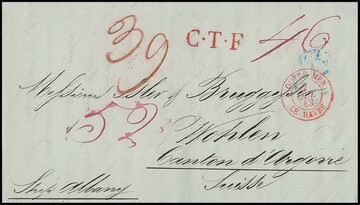 39 C.T.F 46
OUTRE MER
LE HAVRE
Messieurs Isler & Bruggisser
52
Wohlen
Canton d'Argovie
Suisse
Ship Albany